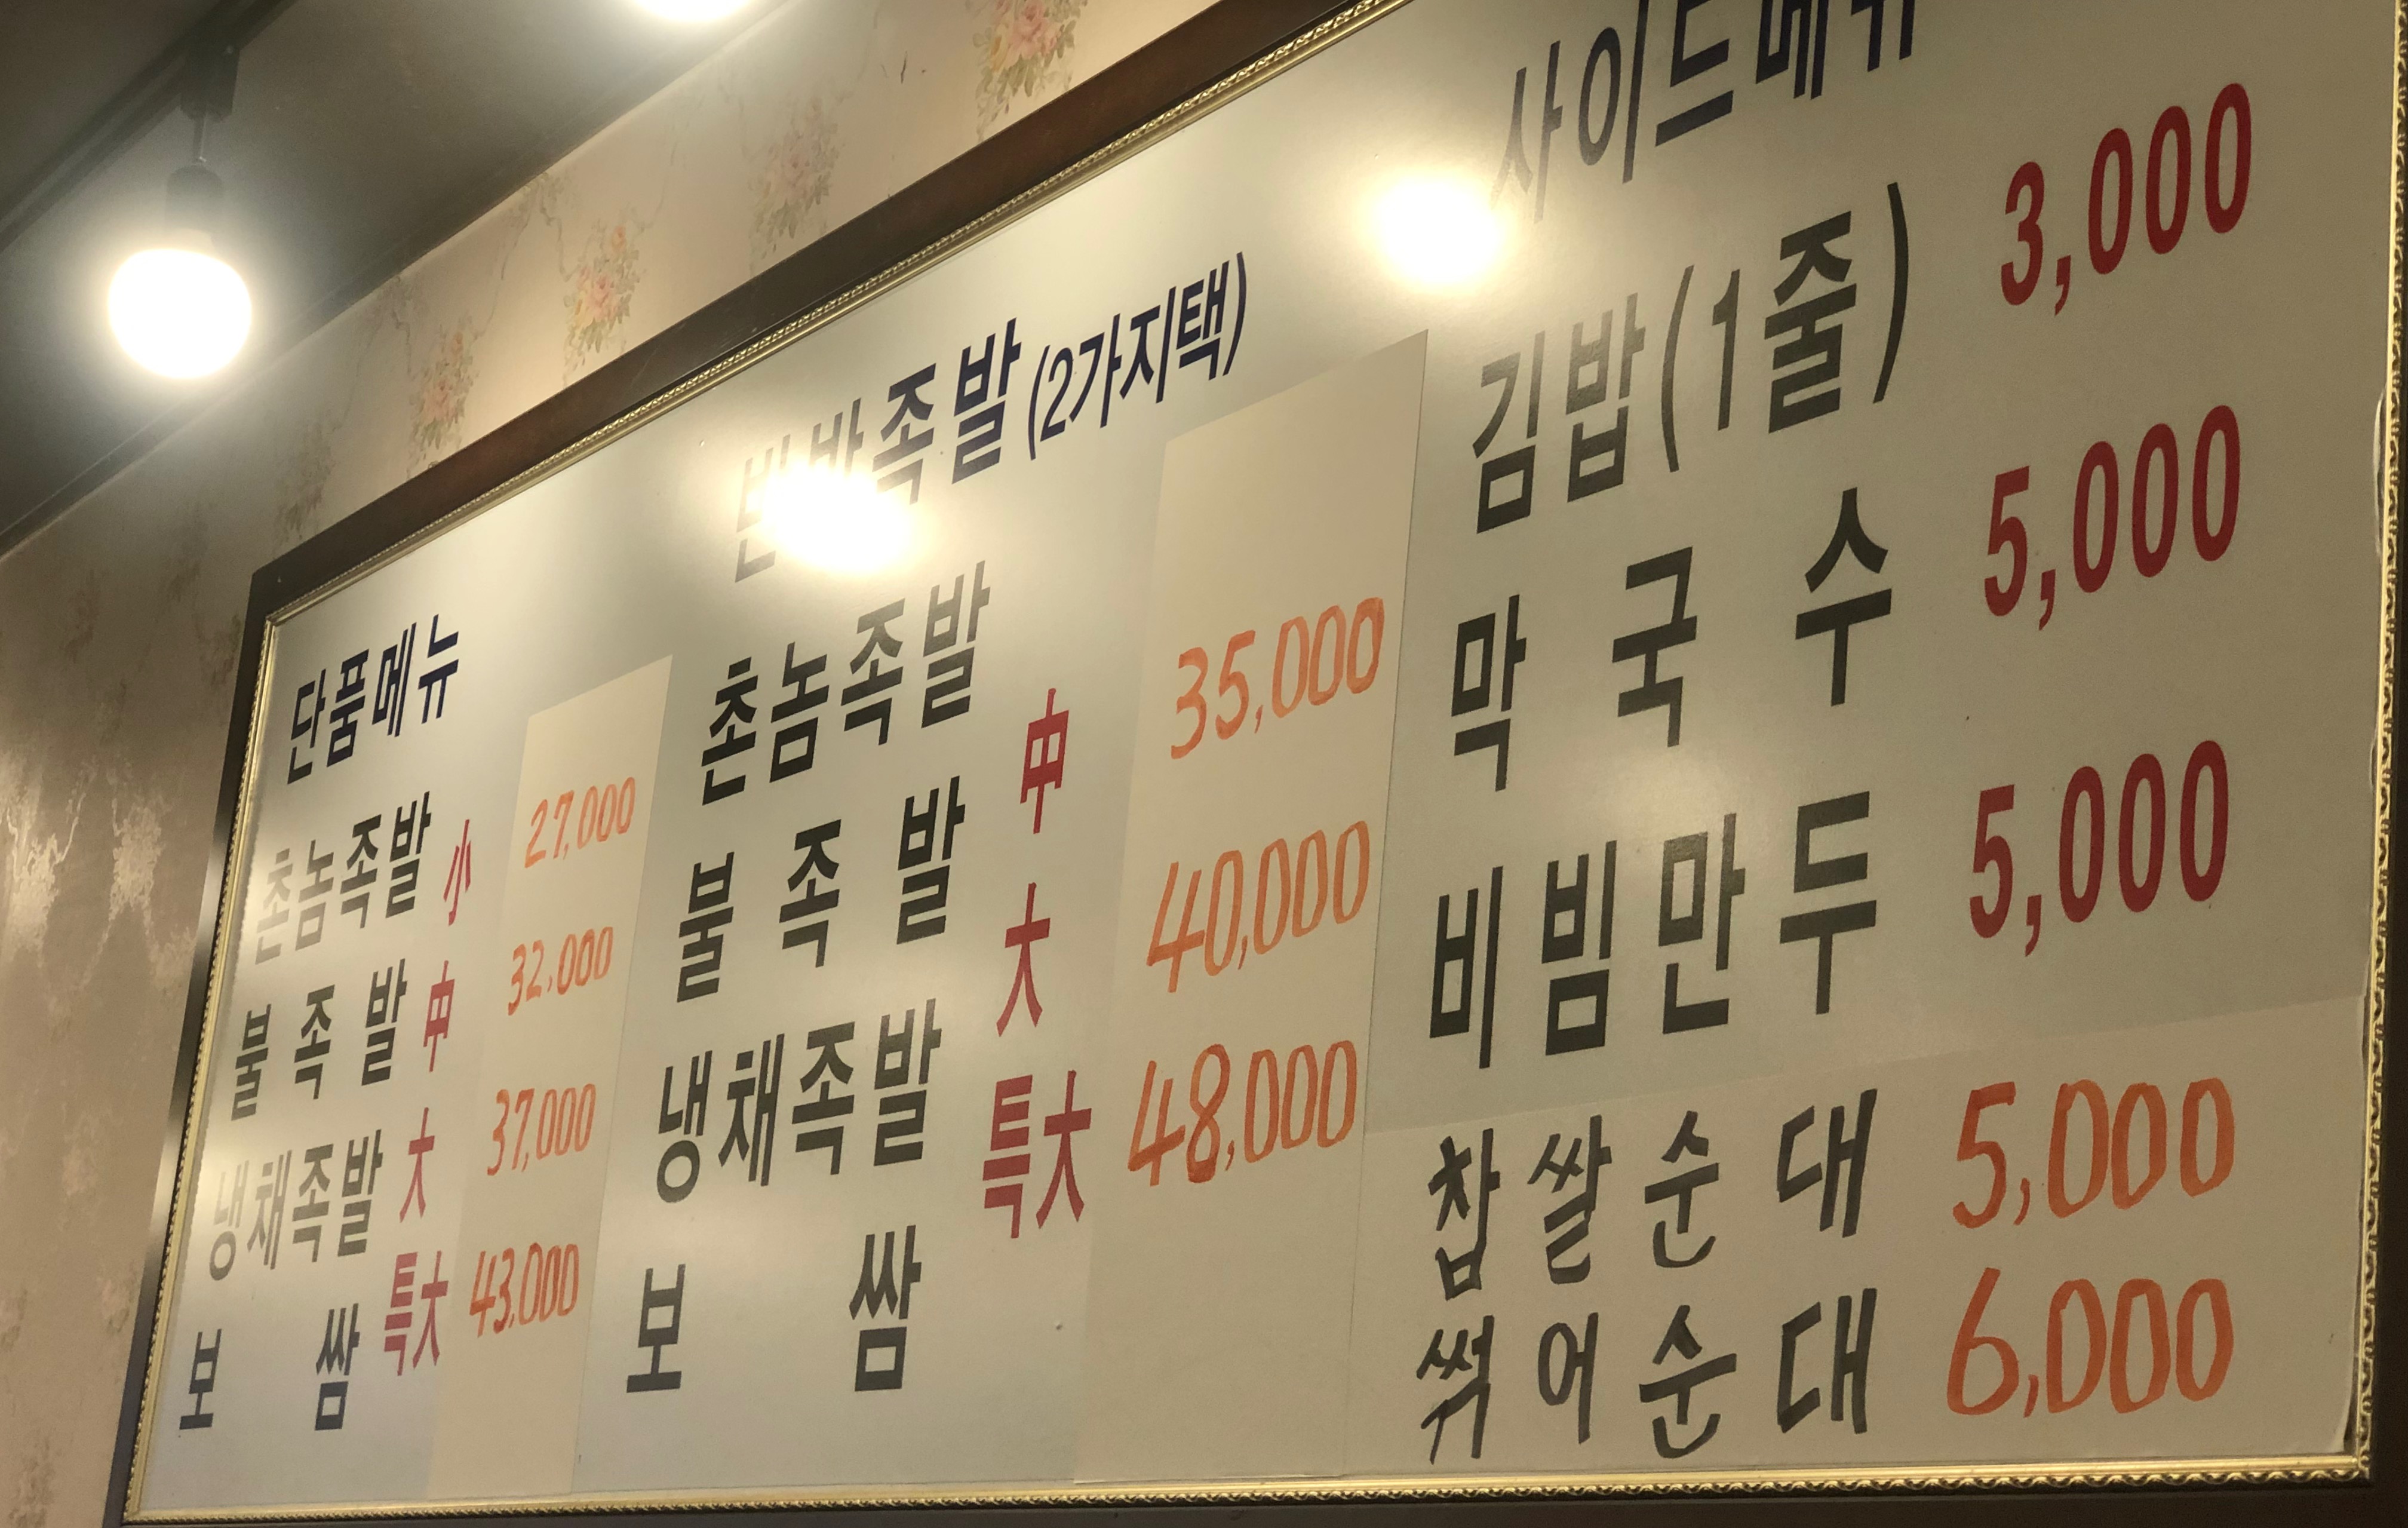 단품메뉴
촌놈족발 小 27,000
불족발 中 32,000
냉채족발 大 37,000
보쌈 특大 43,000
반반족발(2가지택)
촌놈족발 中 35,000
불족발 大 40,000
냉채족발 특大 48,000
보쌈
사이드메뉴
김밥(1줄) 3,000
막국수 5,000
비빔만두 5,000
찹쌀순대 5,000
썩어순대 6,000